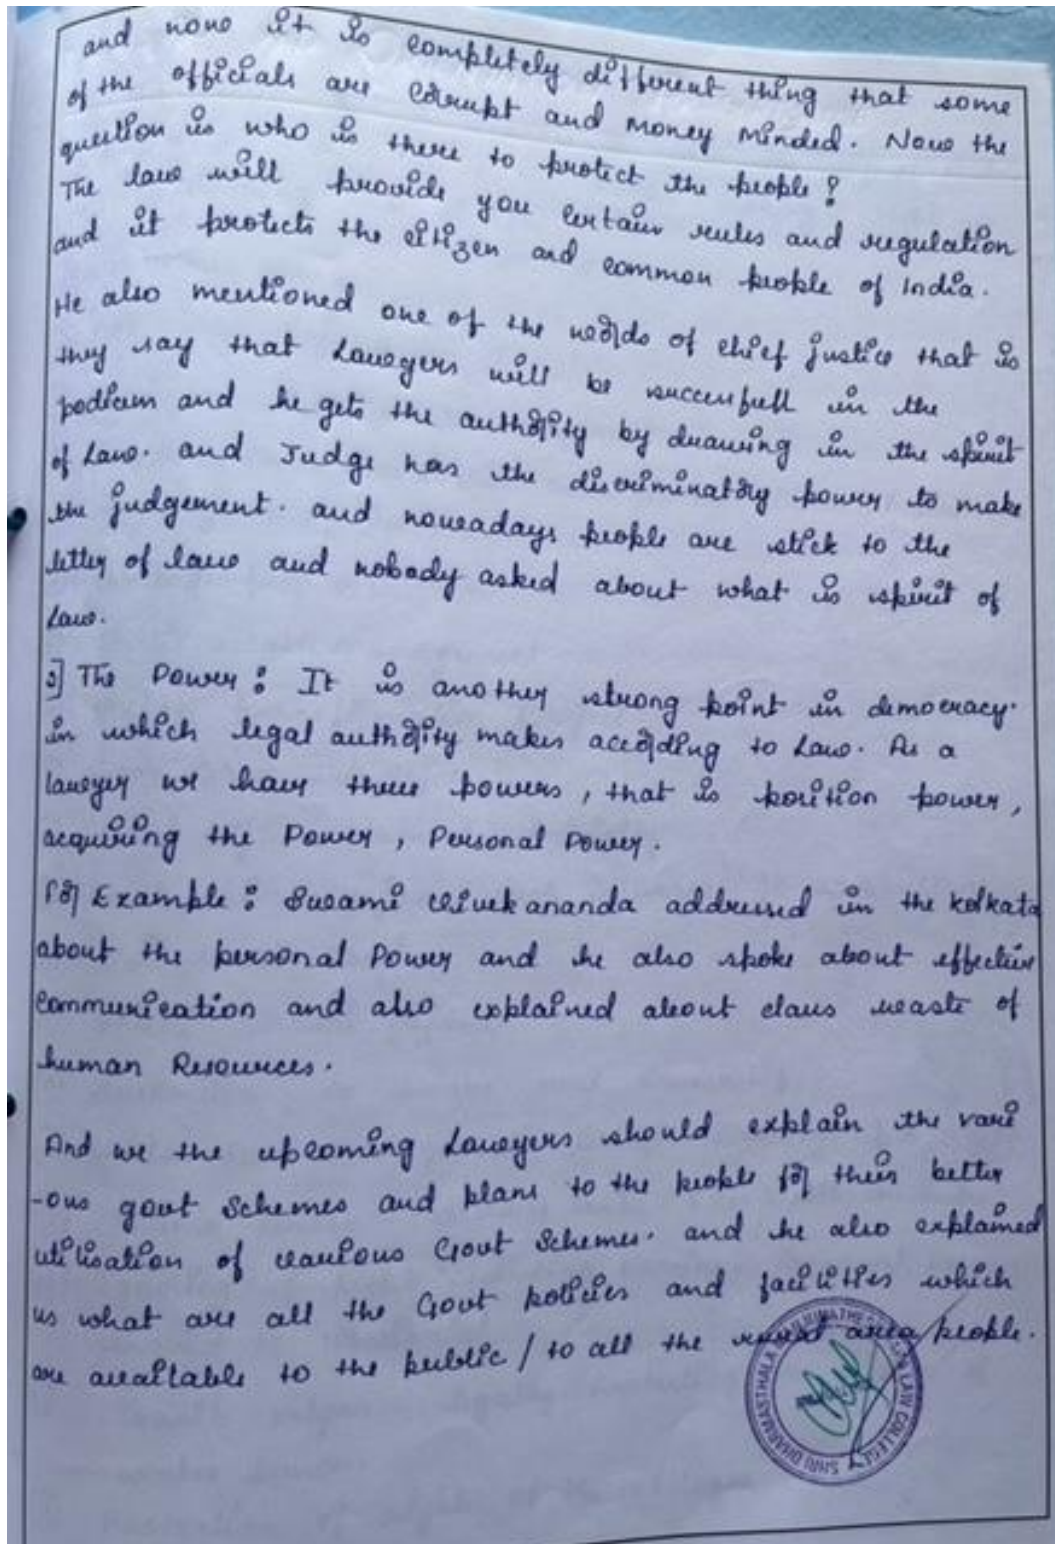 and now it is completely different thing that some
of the officials are corrupt and money minded. Now the
question is who is there to protect the people?
The law will provide you certain rules and regulation
and it protects the citizen and common people of India.
He also mentioned one of the words of chief justice that is
they say that Lawyers will be successfull in the
podium and he gets the authority by drawing in the spirit
of Law. and Judge has the discriminatory power to make
the judgement. and nowadays people are stick to the
letter of law and nobody asked about what is spirit of
Law.
] The Power : It is another strong point in democracy.
in which legal authority makes according to Law. As a
lawyer we have three powers, that is position power,
acquiring the Power, Personal Power.
For Example : Swami Vivekananda addressed in the Kolkata
about the personal Power and he also spoke about effective
Communication and also explained about waste of
human Resources.
And we the upcoming Lawyers should explain the vari
-ous govt Schemes and plans to the people for their better
utilisation of various Govt Schemes. and he also explained
us what are all the Govt policies and facilities which
are available to the public / to all the rural area people.
SHRI DHARMASTHALA MANJUNATHESHWARA LAW COLLEGE